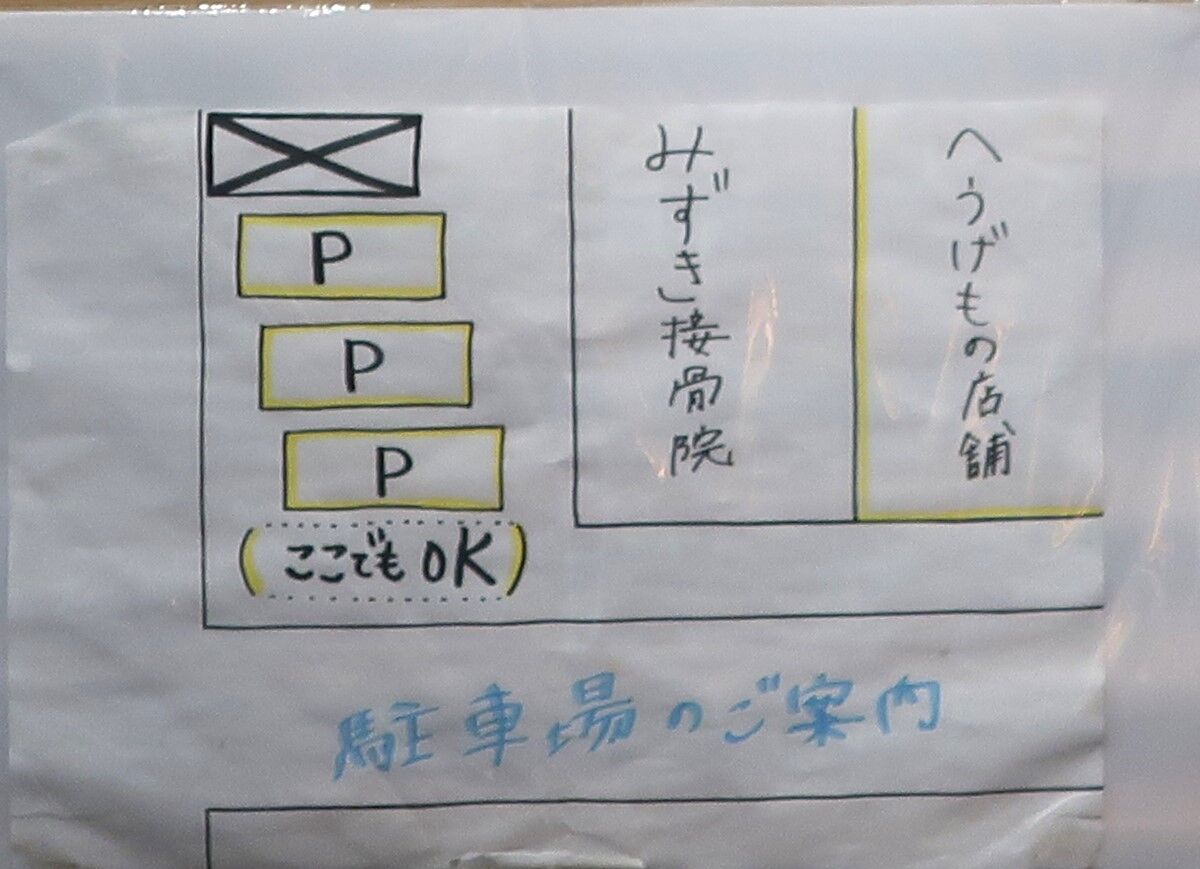 へうげもの店舗
みずき接骨院
P
P
P
(ここでもOK)
駐車場のご案内